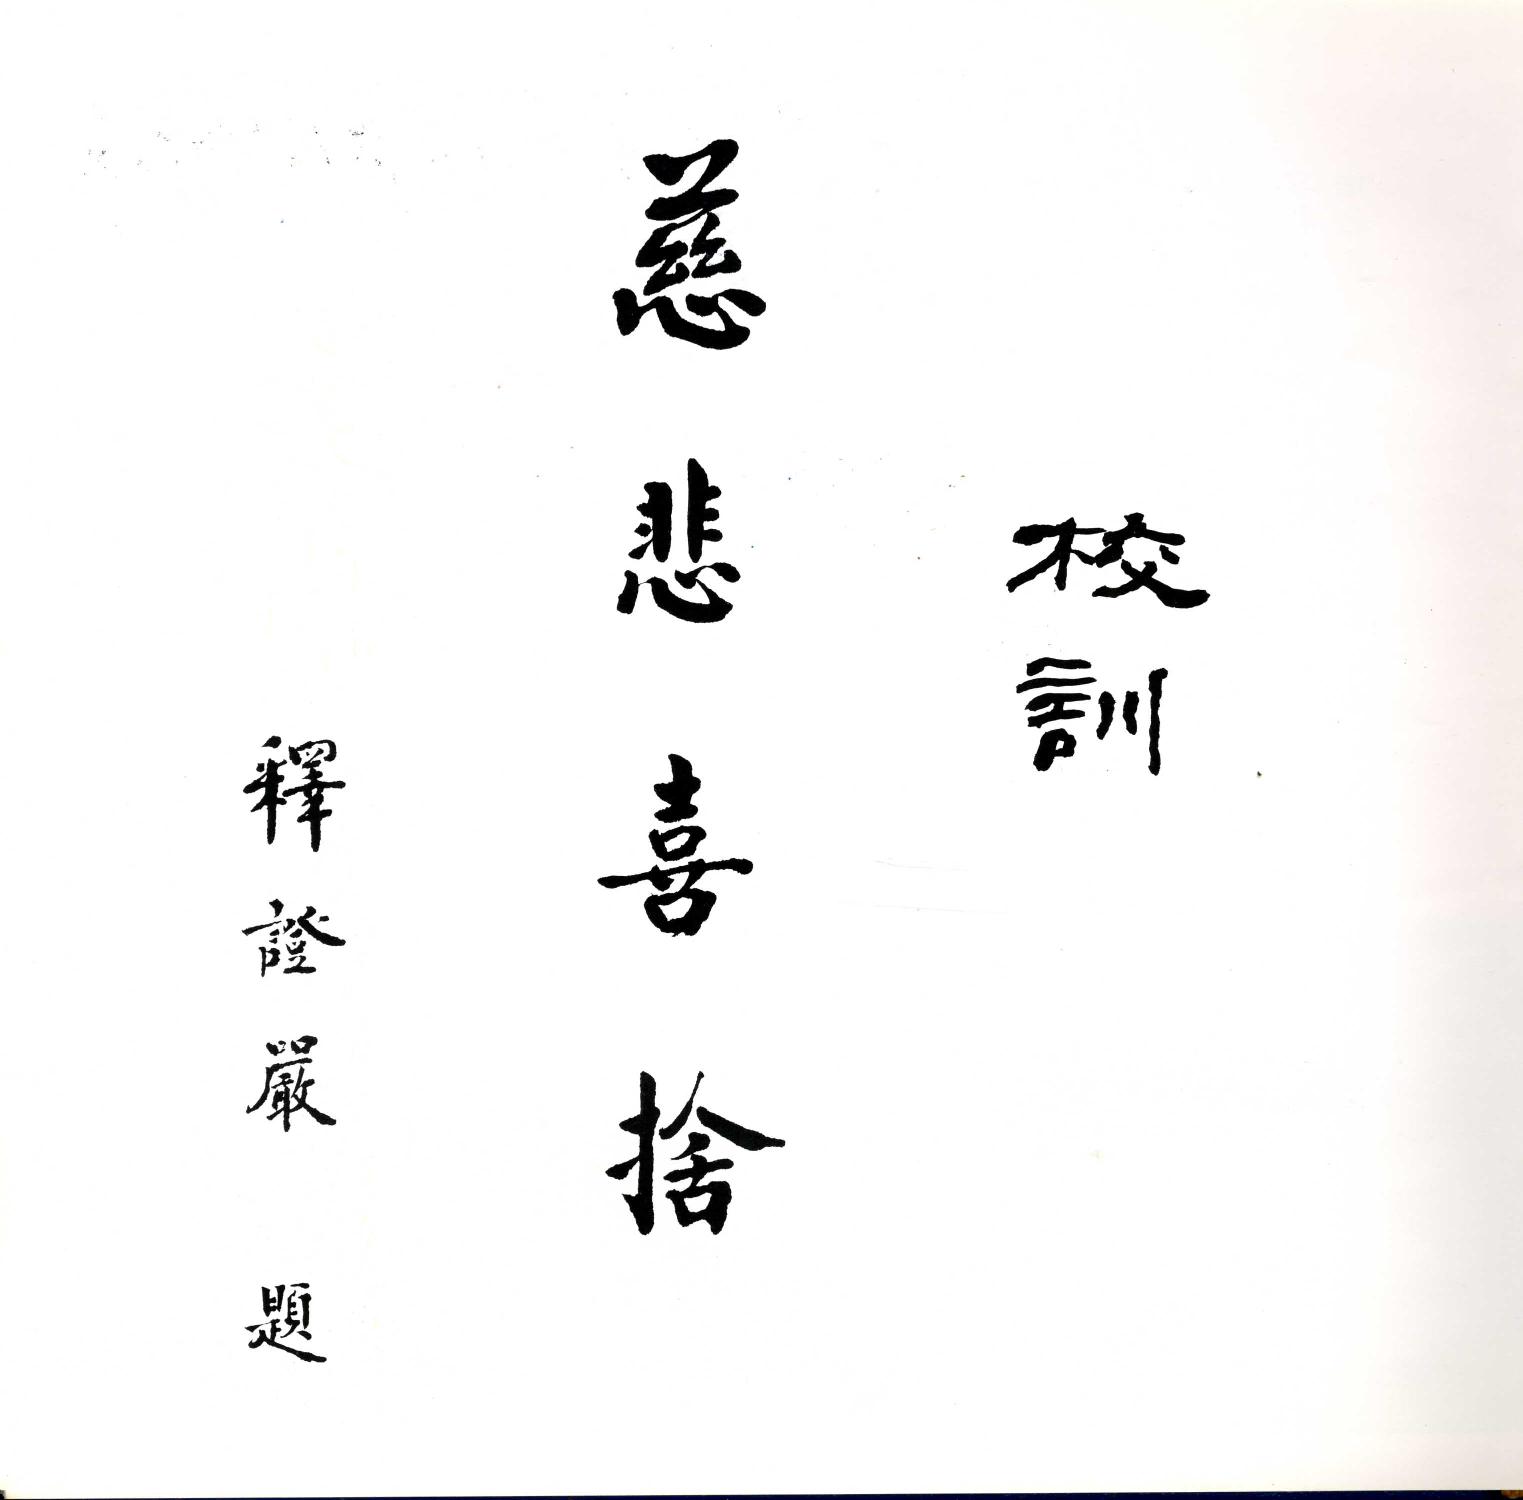 校訓
慈悲喜捨
釋證嚴 題